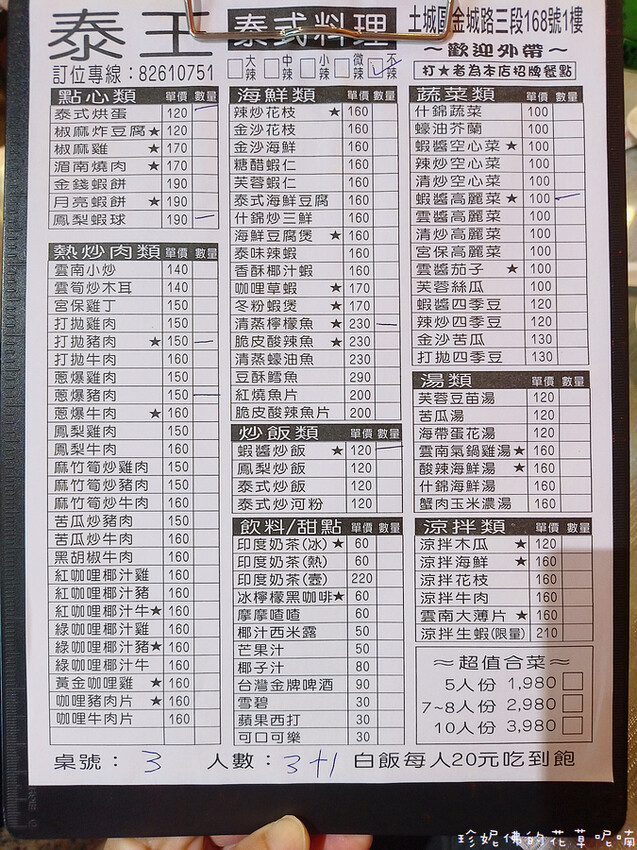 泰王 泰式料理 土城區金城路三段168號1樓
～歡迎外帶～
訂位專線：82610751 大辣 中辣 小辣 微辣 不辣 打★者為本店招牌餐點
點心類 單價 數量
泰式烘蛋 120
椒麻炸豆腐★ 120
椒麻雞 ★ 170
湄南燒肉 ★ 170
金錢蝦餅 190
月亮蝦餅 ★ 190
鳳梨蝦球 190
熱炒肉類 單價 數量
雲南小炒 140
雲筍炒木耳 140
宮保雞丁 150
打拋雞肉 150
打拋豬肉 ★ 150
打拋牛肉 160
蔥爆雞肉 150
蔥爆豬肉 150
蔥爆牛肉 ★ 160
鳳梨雞肉 150
鳳梨牛肉 160
麻竹筍炒雞肉 150
麻竹筍炒豬肉 150
麻竹筍炒牛肉 160
苦瓜炒豬肉 150
苦瓜炒牛肉 160
黑胡椒牛肉 160
紅咖哩椰汁雞 160
紅咖哩椰汁豬 160
紅咖哩椰汁牛★ 160
綠咖哩椰汁雞 160
綠咖哩椰汁豬★ 160
綠咖哩椰汁牛 160
黃金咖哩雞 ★ 160
咖哩豬肉片 ★ 160
咖哩牛肉片 160
海鮮類 單價 數量
辣炒花枝 ★ 160
金沙花枝 160
金沙海鮮 160
糖醋蝦仁 160
芙蓉蝦仁 160
泰式海鮮豆腐 160
什錦炒三鮮 160
海鮮豆腐煲 ★ 160
泰味辣蝦 160
香酥椰汁蝦 160
咖哩草蝦 ★ 170
冬粉蝦煲 ★ 170
清蒸檸檬魚 ★ 230
脆皮酸辣魚 ★ 230
清蒸蠔油魚 230
豆酥鱈魚 290
紅燒魚片 200
脆皮酸辣魚片 200
炒飯類 單價 數量
蝦醬炒飯 ★ 120
鳳梨炒飯 120
泰式炒飯 120
泰式炒河粉 120
飲料/甜點 單價 數量
印度奶茶(冰)★ 60
印度奶茶(熱) 60
印度奶茶(壺) 220
冰檸檬黑咖啡★ 60
摩摩喳喳 60
椰汁西米露 50
芒果汁 50
椰子汁 80
台灣金牌啤酒 90
雪碧 30
蘋果西打 30
可口可樂 30
蔬菜類 單價 數量
什錦蔬菜 100
蠔油芥蘭 100
蝦醬空心菜 ★ 100
辣炒空心菜 100
清炒空心菜 100
蝦醬高麗菜 ★ 100
雲醬高麗菜 100
清炒高麗菜 100
宮保高麗菜 100
雲醬茄子 ★ 100
芙蓉絲瓜 100
蝦醬四季豆 120
辣炒四季豆 120
金沙苦瓜 130
打拋四季豆 130
湯類 單價 數量
芙蓉豆苗湯 120
苦瓜湯 120
海帶蛋花湯 120
雲南氣鍋雞湯★ 160
酸辣海鮮湯 ★ 160
什錦海鮮湯 160
蟹肉玉米濃湯 160
涼拌類 單價 數量
涼拌木瓜 ★ 120
涼拌海鮮 ★ 160
涼拌花枝 160
涼拌牛肉 160
雲南大薄片 ★ 160
涼拌生蝦(限量) 210
～超值合菜～
5人份 1,980
7~8人份 2,980
10人份 3,980
桌號： 3 人數： 3+1 白飯每人20元吃到飽
珍妮佛的花草呢喃